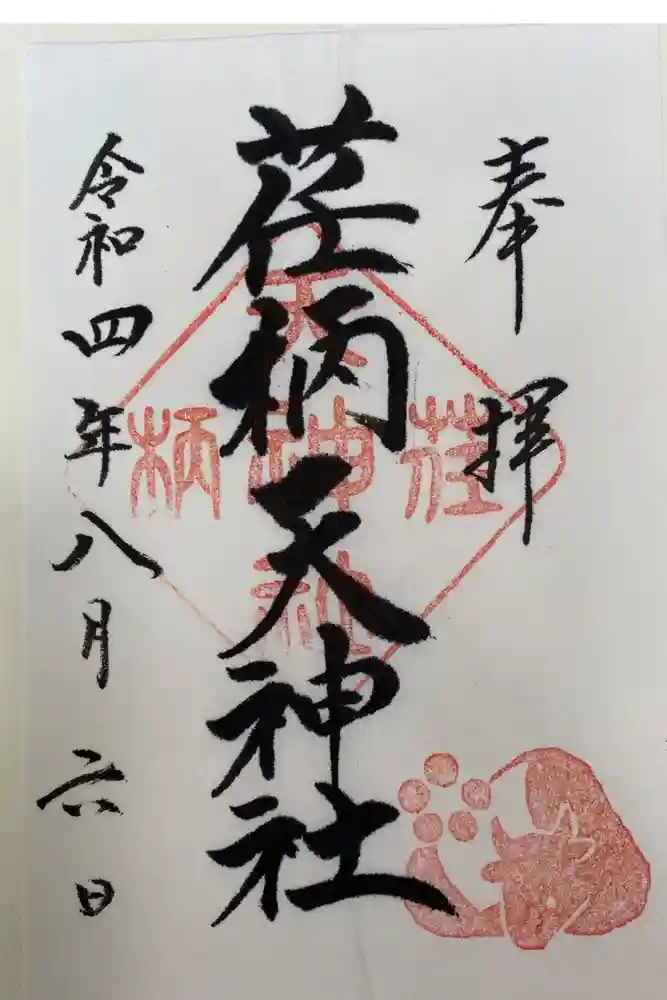 奉拝
荏柄天神社
荏柄天神社
令和四年八月六日